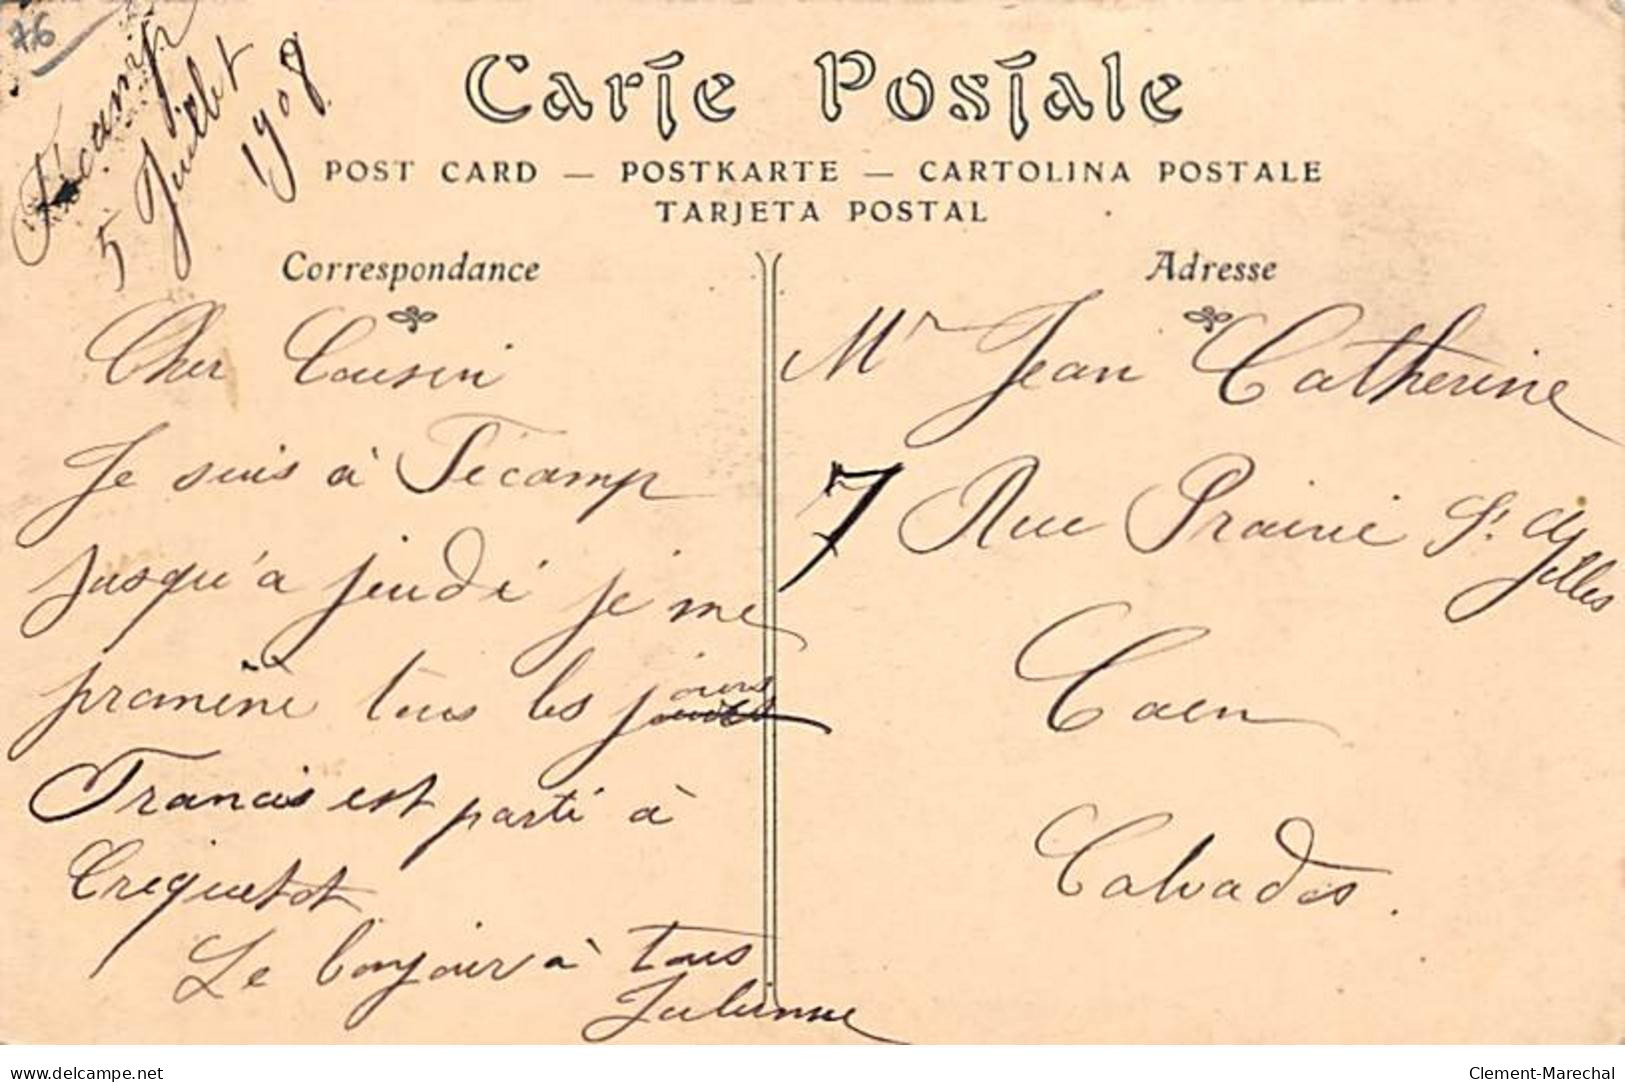 76
Fécamp
5 Juillet
1908
Carte Postale
POST CARD — POSTKARTE — CARTOLINA POSTALE
TARJETA POSTAL
Correspondance
Cher Cousin
Je suis à Fécamp
jusqu'à jeudi je me
promène tous les jours
Francis est parti à
Criquetot
Le bonjour à tous
Julienne
Adresse
Mr Jean Catherine
7 Rue Prairie St Gilles
Caen
Calvados.
www.delcampe.net
Clement-Marechal